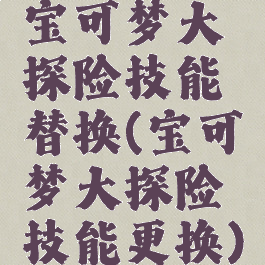 宝可梦大
探险技能
替换(宝可
梦大探险
技能更换)